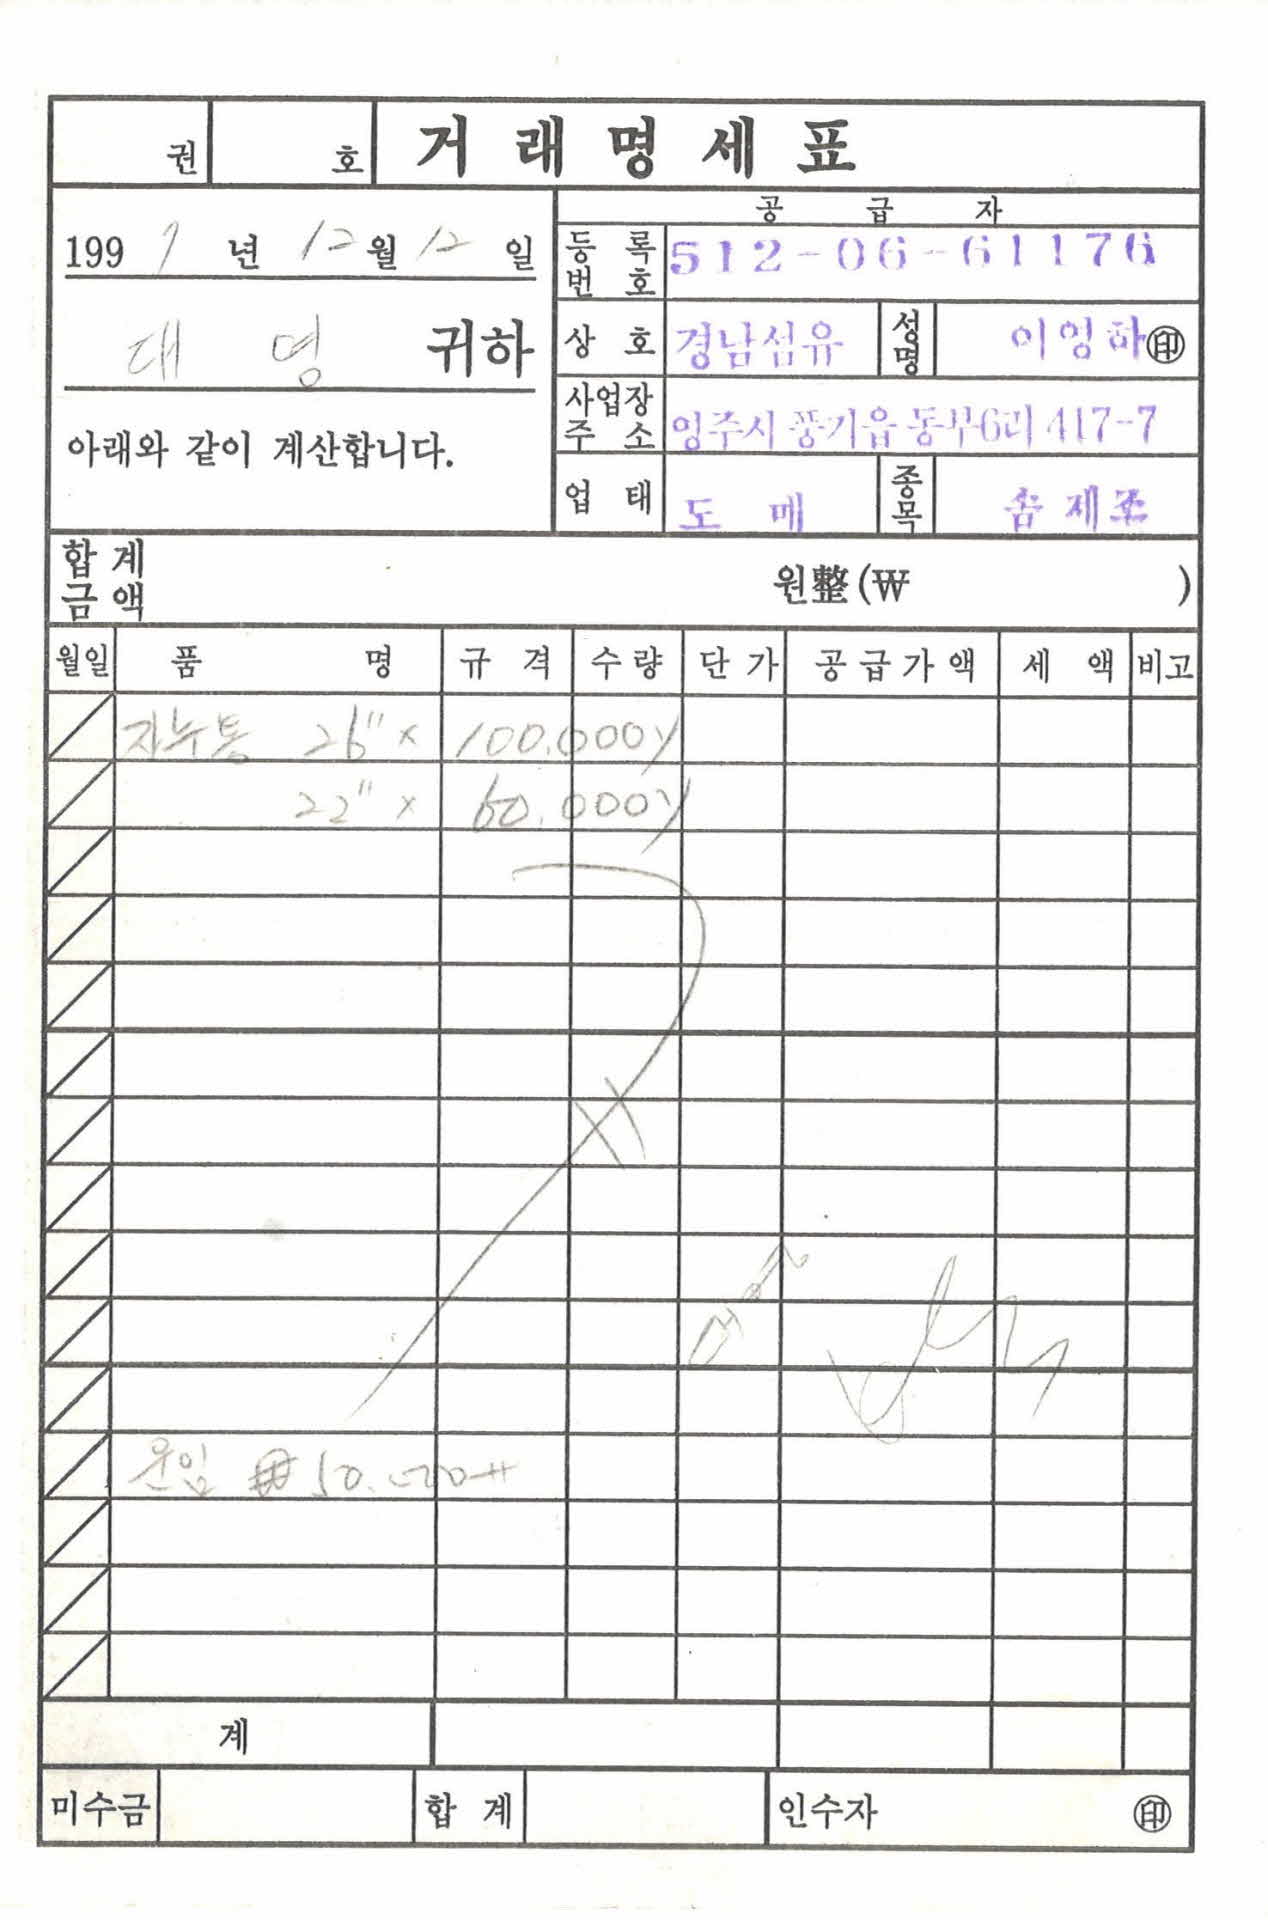 권 호 거래명세표
1997년 12월 12일
대영 귀하
아래와 같이 계산합니다.
공급자
등록번호 512-06-61176
상호 경남섬유 성명 이영하 ㊞
사업장주소 영주시 풍기읍 동부6리 417-7
업태 도매 종목
합계금액 원整(₩ )
월일 품명 규격 수량 단가 공급가액 세액 비고
26" × 100.000y
22" × 60.000y
운임 ₩50.000
계
미수금 합계 인수자 ㊞